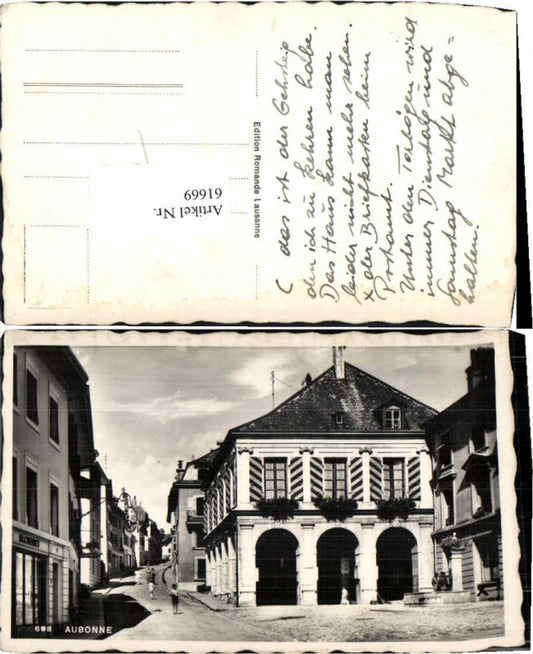 C das ist der Gehsteig
den ich zu kehren habe.
Das Haus kann man
leider nicht mehr sehen.
x der Briefkasten beim
Postamt.
Unter den Torbögen wird
immer Dienstag und
Samstag Markt abge=
halten.
Edition Romande Lausanne
Artikel Nr.
61669
698 AUBONNE